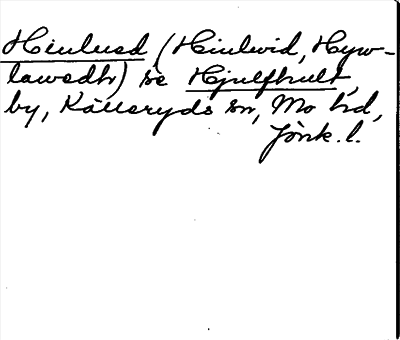 Hiulusd (Hiulwid, Hyw-
lawsdh) se Hjulfhult,
by, Källeryds sn, Mo hd,
Jönk. l.